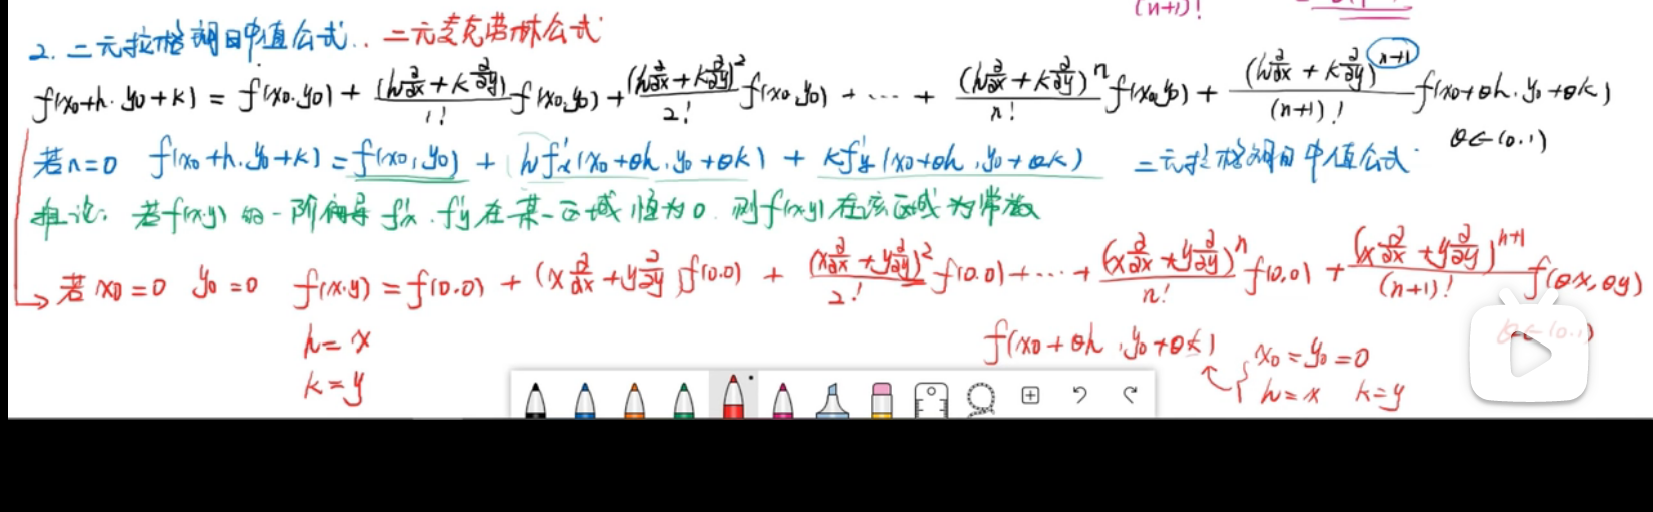 (n+1)!
2. 二元拉格朗日中值公式.. 二元麦克劳林公式
f(x₀+h, y₀+k) = f(x₀,y₀) + (h∂/∂x + k∂/∂y)/1! f(x₀,y₀) + (h∂/∂x + k∂/∂y)²/2! f(x₀,y₀) + ⋯ + (h∂/∂x + k∂/∂y)ⁿ/n! f(x₀,y₀) + (h∂/∂x + k∂/∂y)ⁿ⁺¹/(n+1)! f(x₀+θh, y₀+θk)
θ∈(0,1)
若n=0 f(x₀+h, y₀+k) = f(x₀,y₀) + hf'x(x₀+θh, y₀+θk) + kf'y(x₀+θh, y₀+θk) 二元拉格朗日中值公式.
推论: 若f(x,y)的一阶偏导 f'x, f'y 在某一区域恒为0, 则f(x,y)在该区域为常数
若 x₀=0 y₀=0 f(x,y) = f(0,0) + (x∂/∂x + y∂/∂y)f(0,0) + (x∂/∂x + y∂/∂y)²/2! f(0,0) + ⋯ + (x∂/∂x + y∂/∂y)ⁿ/n! f(0,0) + (x∂/∂x + y∂/∂y)ⁿ⁺¹/(n+1)! f(θx, θy)
θ∈(0,1)
h=x
k=y
f(x₀+θh, y₀+θk)
x₀=y₀=0
h=x k=y